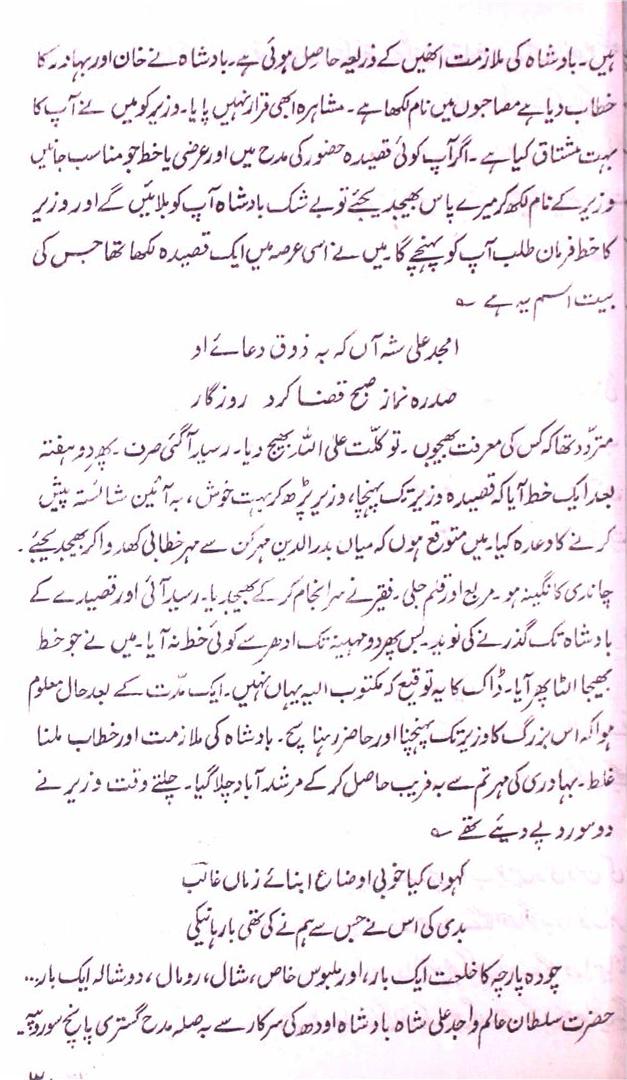 ہیں۔ بادشاہ کی ملازمت انھیں کے ذریعہ حاصل ہوئی ہے۔ بادشاہ نے خان اور بہادر کا
خطاب دیا ہے مصاحبوں میں نام لکھا ہے۔ مشاہرہ ابھی قرار نہیں پایا۔ وزیر کو میں نے آپ کا
بہت مشتاق کیا ہے۔ اگر آپ کوئی قصیدہ حضور کی مدح میں اور عرضی یا خط جو مناسب جانیں
وزیر کے نام لکھ کر میرے پاس بھیجد یجئے تو بے شک بادشاہ آپ کو بلائیں گے اور وزیر
کا خط فرمان طلب آپ کو پہنچے گا۔ میں نے اسی عرصہ میں ایک قصیدہ لکھا تھا جس کی
بیت اسم یہ ہے ؎
امجد علی شہ آں کہ بہ ذوق دعائے او
صدرہ نماز صبح قضا کرد روزگار
متردّد تھا کہ کس کی معرفت بھیجوں۔ توکلّت علیٰ اللہ بھیج دیا۔ رسید آگئی صرف۔ پھر دو ہفتہ
بعد ایک خط آیا کہ قصیدہ وزیر تک پہنچا، وزیر پڑھ کر بہت خوش، بہ آئین شائستہ پیش
کرنے کا وعدہ کیا۔ میں متوقع ہوں کہ میاں بدرالدین مہرکن سے مہر خطابی کھدوا کر بھیجد یجئے۔
چاندی کا نگینہ ہو۔ مربع اور قلم جلی۔ فقیر نے سرانجام کر کے بھیجدیا۔ رسید آئی اور قصیدے کے
بادشاہ تک گذرنے کی نوید۔ بس پھر دو مہینہ تک ادھر سے کوئی خط نہ آیا۔ میں نے جو خط
بھیجا الٹا پھر آیا۔ ڈاک کا یہ توقیع کہ مکتوب الیہ یہاں نہیں۔ ایک مدّت کے بعد حال معلوم
ہوا کہ اس بزرگ کا وزیر تک پہنچنا اور حاضر رہنا سچ۔ بادشاہ کی ملازمت اور خطاب ملنا
غلط۔ بہادری کی مہر تم سے بہ فریب حاصل کر کے مرشد آباد چلا گیا۔ چلتے وقت وزیر نے
دو سو روپے دیئے تھے ؎
کہوں کیا خوبی اوضاع ابنائے زماں غالبؔ
بدی کی اس نے جس سے ہم نے کی تھی بارہا نیکی
چودہ پارچہ کا خلعت ایک بار، اور ملبوس خاص، شال، رومال، دوشالہ ایک بار...
حضرت سلطان عالم واجد علی شاہ بادشاہ اودھ کی سرکار سے بہ صلہ مدح گستری پانچ سو روپیہ